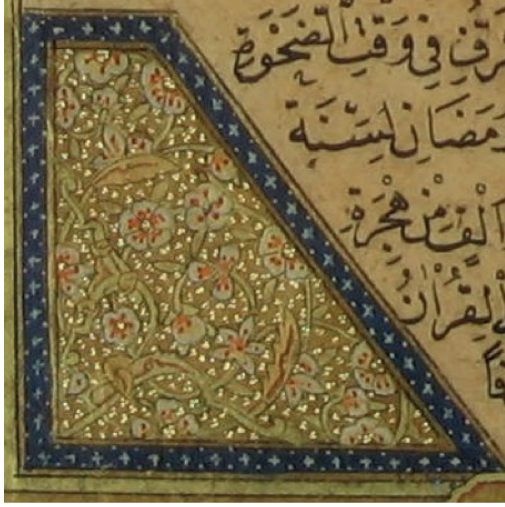 فِي وَقْتِ الضَّحْوَةِ
رَمَضَانِ لِسَنَةِ
اَلْفٍ مِنْ هِجْرَةِ
الْقُرْاٰنُ